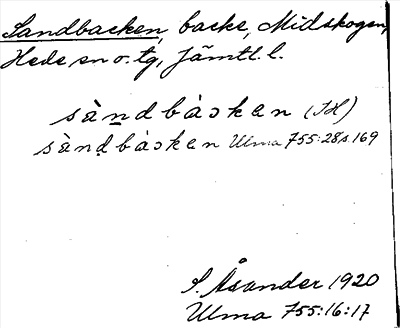 Sandbacken, backe, Midskogen,
Hede sn o. tg, Jämtl. l.
sànḏbàɔken (JH)
sàndbàɔken Ulma 755:28 s. 169
S. Åsander 1920
Ulma 755:16:17